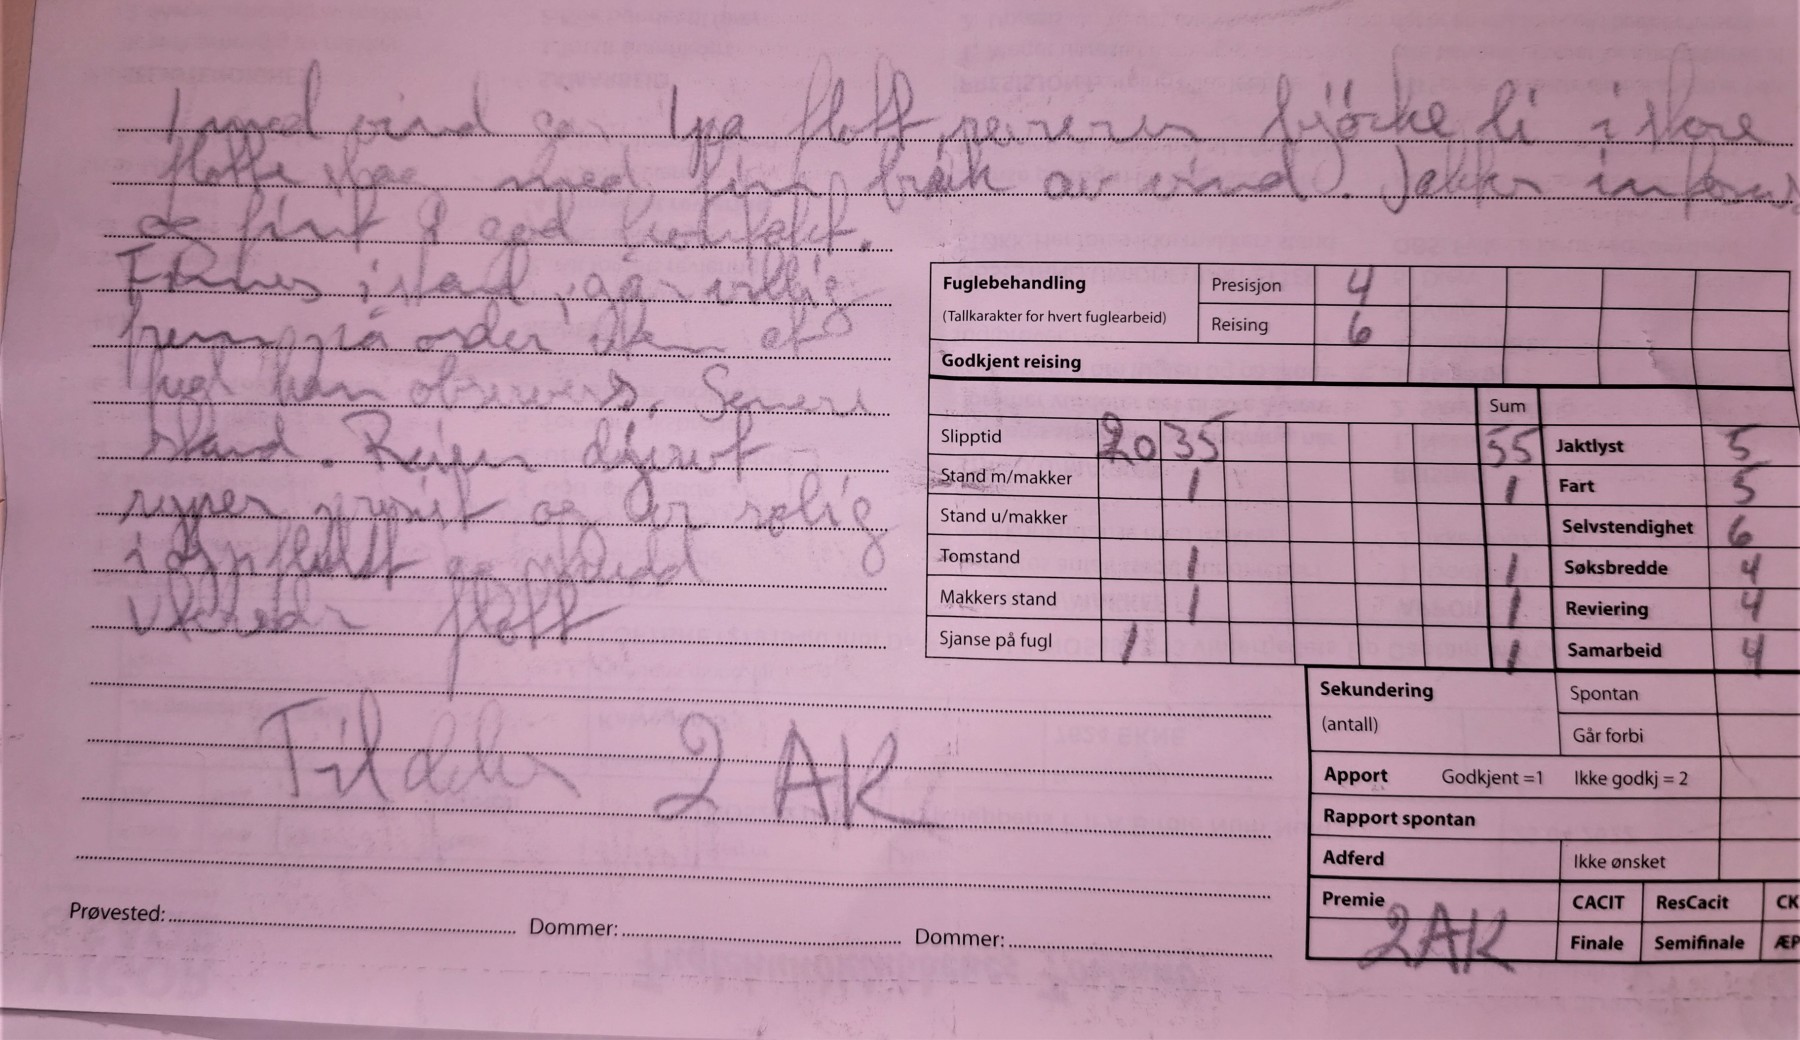 I med vind og på flott reviereres bjørke li i store
flotte slag med fin bruk av vind. Jakter
og fint i god kontakt.
Finnes i stand, går villig
frem på order uten at
fugl kan observeres. Senere
stand. Reiser djervt
ryper presist og er rolig
i oppflukt og skudd
flott
Tildeles 2 AK
Fuglebehandling Presisjon 4
(Tallkarakter for hvert fuglearbeid) Reising 6
Godkjent reising
Sum
Slipptid 20 35 55 Jaktlyst 5
Stand m/makker 1 1 Fart 5
Stand u/makker Selvstendighet 6
Tomstand 1 1 Søksbredde 4
Makkers stand 1 1 Reviering 4
Sjanse på fugl 1 1 Samarbeid 4
Sekundering Spontan
(antall) Går forbi
Apport Godkjent =1 Ikke godkj = 2
Rapport spontan
Adferd Ikke ønsket
Premie CACIT ResCacit CK
2AK Finale Semifinale ÆP
Prøvested: Dommer: Dommer: